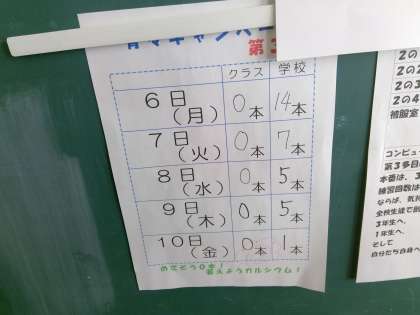 第3
クラス 学校
6日(月) 0本 14本
7日(火) 0本 7本
8日(水) 0本 5本
9日(木) 0本 5本
10日(金) 0本 1本
めざそう0本!
蓄えようカルシウム!
2の
2の
2の3
2の4
被服室
コンピュ
第3多目
本番は、3
練習回数は
ならば、気持
全校生徒で創
3年生へ、
1年生へ、
そして
自分たち自身へ